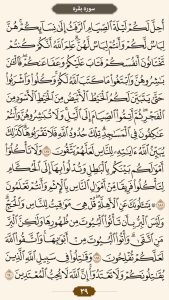 سوره بقره
أُحِلَّ لَكُمْ لَيْلَةَ الصِّيَامِ الرَّفَثُ إِلَى نِسَائِكُمْ هُنَّ
لِبَاسٌ لَكُمْ وَأَنْتُمْ لِبَاسٌ لَهُنَّ عَلِمَ اللَّهُ أَنَّكُمْ كُنْتُمْ
تَخْتَانُونَ أَنْفُسَكُمْ فَتَابَ عَلَيْكُمْ وَعَفَا عَنْكُمْ فَالْآنَ
بَاشِرُوهُنَّ وَابْتَغُوا مَا كَتَبَ اللَّهُ لَكُمْ وَكُلُوا وَاشْرَبُوا
حَتَّى يَتَبَيَّنَ لَكُمُ الْخَيْطُ الْأَبْيَضُ مِنَ الْخَيْطِ الْأَسْوَدِ مِنَ
الْفَجْرِ ثُمَّ أَتِمُّوا الصِّيَامَ إِلَى اللَّيْلِ وَلَا تُبَاشِرُوهُنَّ وَأَنْتُمْ
عَاكِفُونَ فِي الْمَسَاجِدِ تِلْكَ حُدُودُ اللَّهِ فَلَا تَقْرَبُوهَا كَذَلِكَ
يُبَيِّنُ اللَّهُ آيَاتِهِ لِلنَّاسِ لَعَلَّهُمْ يَتَّقُونَ ﴿١٨٧﴾ وَلَا تَأْكُلُوا
أَمْوَالَكُمْ بَيْنَكُمْ بِالْبَاطِلِ وَتُدْلُوا بِهَا إِلَى الْحُكَّامِ
لِتَأْكُلُوا فَرِيقًا مِنْ أَمْوَالِ النَّاسِ بِالْإِثْمِ وَأَنْتُمْ تَعْلَمُونَ
﴿١٨٨﴾ يَسْأَلُونَكَ عَنِ الْأَهِلَّةِ قُلْ هِيَ مَوَاقِيتُ لِلنَّاسِ وَالْحَجِّ
وَلَيْسَ الْبِرُّ بِأَنْ تَأْتُوا الْبُيُوتَ مِنْ ظُهُورِهَا وَلَكِنَّ الْبِرَّ
مَنِ اتَّقَى وَأْتُوا الْبُيُوتَ مِنْ أَبْوَابِهَا وَاتَّقُوا اللَّهَ
لَعَلَّكُمْ تُفْلِحُونَ ﴿١٨٩﴾ وَقَاتِلُوا فِي سَبِيلِ اللَّهِ الَّذِينَ
يُقَاتِلُونَكُمْ وَلَا تَعْتَدُوا إِنَّ اللَّهَ لَا يُحِبُّ الْمُعْتَدِينَ ﴿١٩٠﴾
٢٩